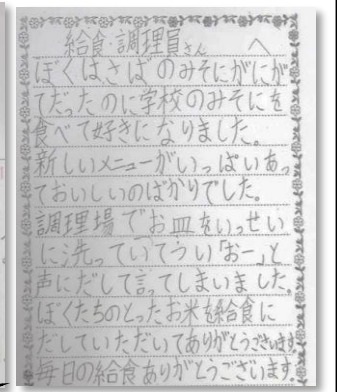 給食・調理員さん へ
ぼくはさばのみそにがにが
てだったのに学校のみそにを
食べて好きになりました。
新しいメニューがいっぱいあっ
ておいしいのばかりでした。
調理場でお皿をいっせい
に洗っていてうい「おー」と
声にだして言ってしまいました。
ぼくたちのとったお米を給食に
だしていただいてありがとうございます
毎日の給食ありがとうございます。